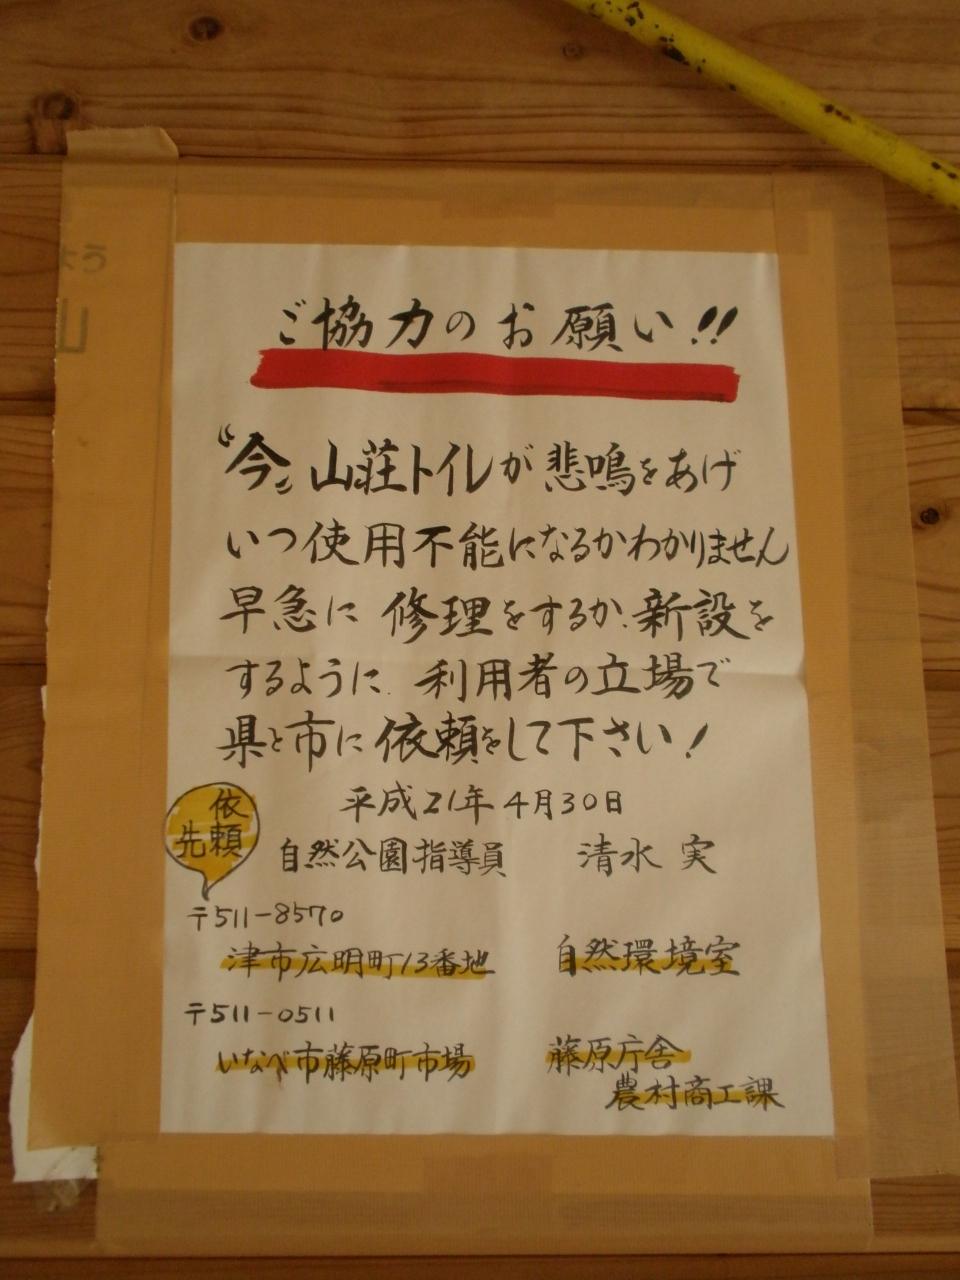 ご協力のお願い!!
〝今〟山荘トイレが悲鳴をあげ
いつ使用不能になるかわかりません
早急に修理をするか、新設を
するように、利用者の立場で
県と市に依頼をして下さい!
平成21年4月30日
依頼先
自然公園指導員 清水 実
〒511-8570
津市広明町13番地 自然環境室
〒511-0511
いなべ市藤原町市場 藤原庁舎
農村商工課